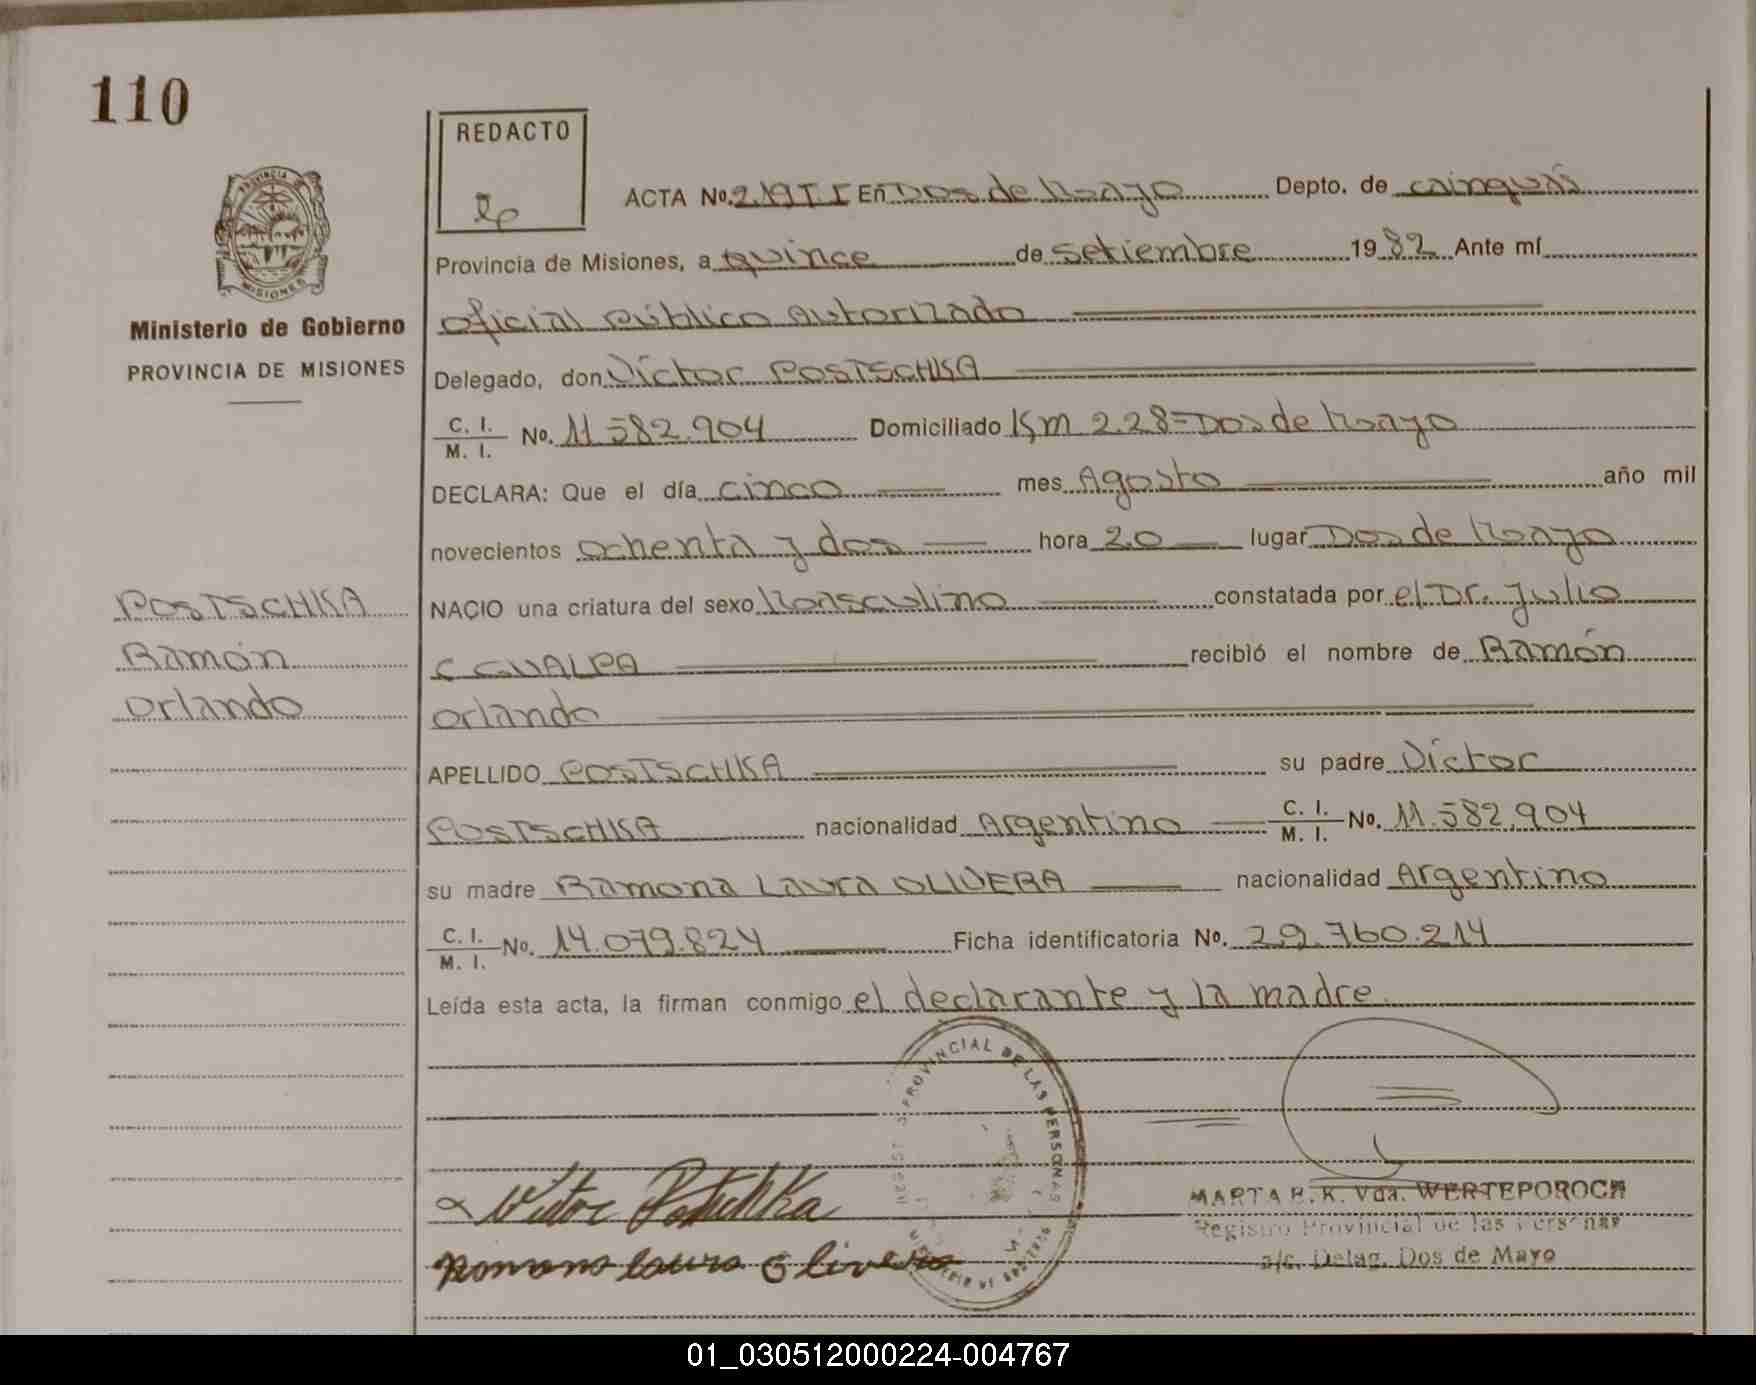 110
REDACTO
PROVINCIA
MISIONES
Ministerio de Gobierno
PROVINCIA DE MISIONES
ACTA No. 219 T I En Dos de Mayo Depto. de cainguás
Provincia de Misiones, a quince de setiembre 1982 Ante mí
oficial público autorizado
Delegado, don Víctor POSTSCHKA
C. I. M. I. No. 11.582.904 Domiciliado Km 228-Dos de Mayo
DECLARA: Que el día cinco mes Agosto año mil
novecientos ochenta y dos hora 20 lugar Dos de Mayo
POSTSCHKA NACIO una criatura del sexo Masculino constatada por el Dr. Julio
Ramón C GUALPA recibió el nombre de Ramón
Orlando Orlando
APELLIDO POSTSCHKA su padre Víctor
POSTSCHKA nacionalidad Argentino C. I. M. I. No. 11.582.904
su madre Ramona Laura OLIVERA nacionalidad Argentino
C. I. M. I. No. 14.079.824 Ficha identificatoria No. 29.760.214
Leída esta acta, la firman conmigo el declarante y la madre.
PROVINCIAL DE LAS PERSONAS
Victor Potschka
MARTA B. K. Vda. WERTEPOROCH
Registro Provincial de las Personas
Romona Laura Olivera
a/c. Deleg. Dos de Mayo
01_030512000224-004767